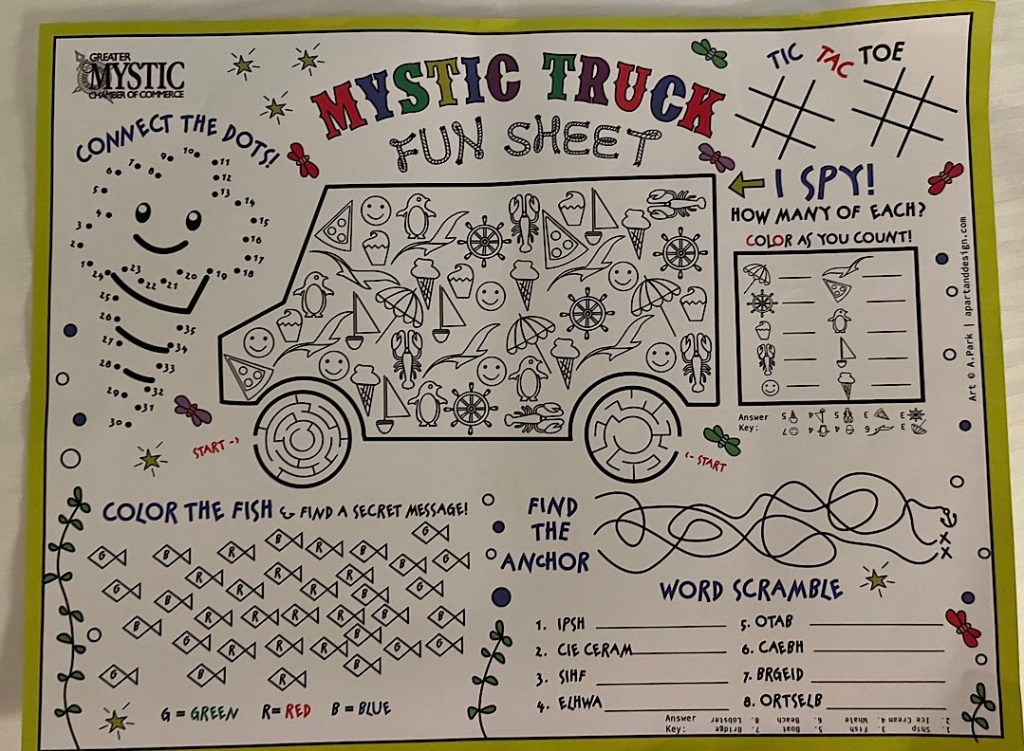 GREATER
MYSTIC
CHAMBER OF COMMERCE
MYSTIC TRUCK
FUN SHEET
TIC TAC TOE
CONNECT THE DOTS!
1
2
3
4
5
6
7
8
9
10
11
12
13
14
15
16
17
18
19
20
21
22
23
24
25
26
27
28
29
30
31
32
33
34
35
I SPY!
HOW MANY OF EACH?
COLOR AS YOU COUNT!
Answer
Key:
5 4 5 3 3
7 4 4 6 3
Art © A.Park | apartanddesign.com
START ->
<- START
COLOR THE FISH & FIND A SECRET MESSAGE!
G B R B R B G B G
G B R R R B G
B R R R R B G
G R R B G G
G B R B
G = GREEN R= RED B = BLUE
FIND
THE
ANCHOR
X
X
WORD SCRAMBLE
1. IPSH
2. CIE CERAM
3. SIHF
4. ELHWA
5. OTAB
6. CAEBH
7. BRGEID
8. ORTSELB
Answer
Key:
1. Ship 3. Fish 5. Boat 7. Bridge
2. Ice Cream 4. Whale 6. Beach 8. Lobster